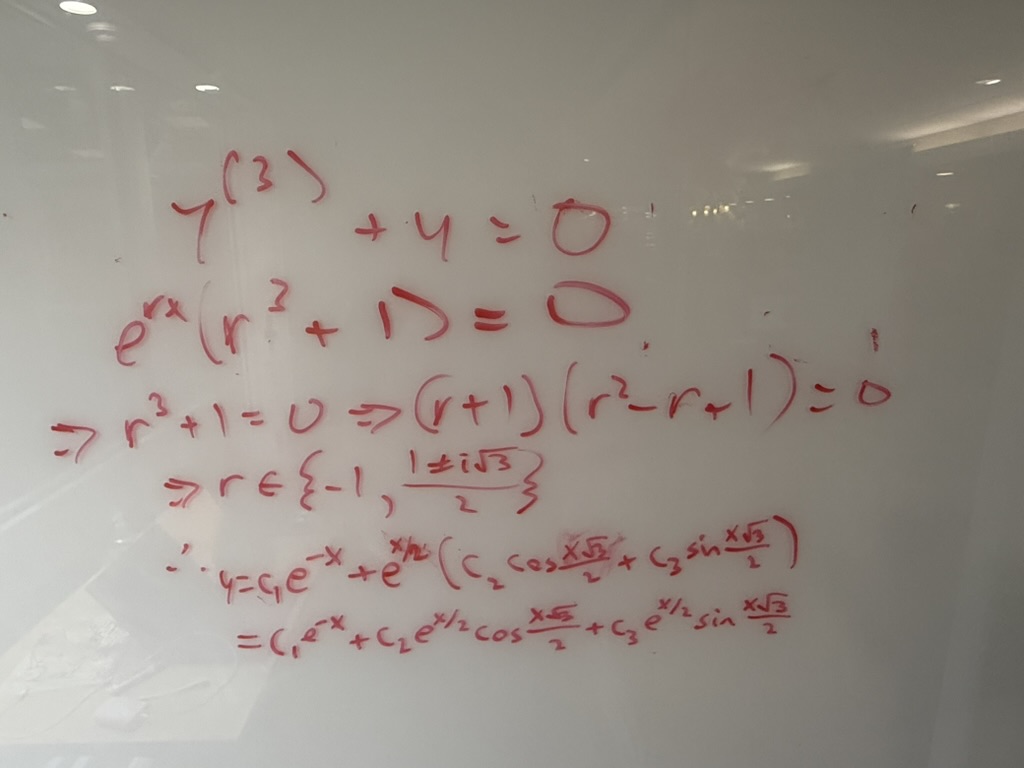 y⁽³⁾ + y = 0
eʳˣ(r³ + 1) = 0
⇒ r³ + 1 = 0 ⇒ (r + 1)(r² - r + 1) = 0
⇒ r ∈ {-1, (1 ± i√3)/2}
∴ y = c₁e⁻ˣ + e^(x/2) (c₂ cos (x√3)/2 + c₃ sin (x√3)/2)
= c₁e⁻ˣ + c₂e^(x/2) cos (x√3)/2 + c₃e^(x/2) sin (x√3)/2